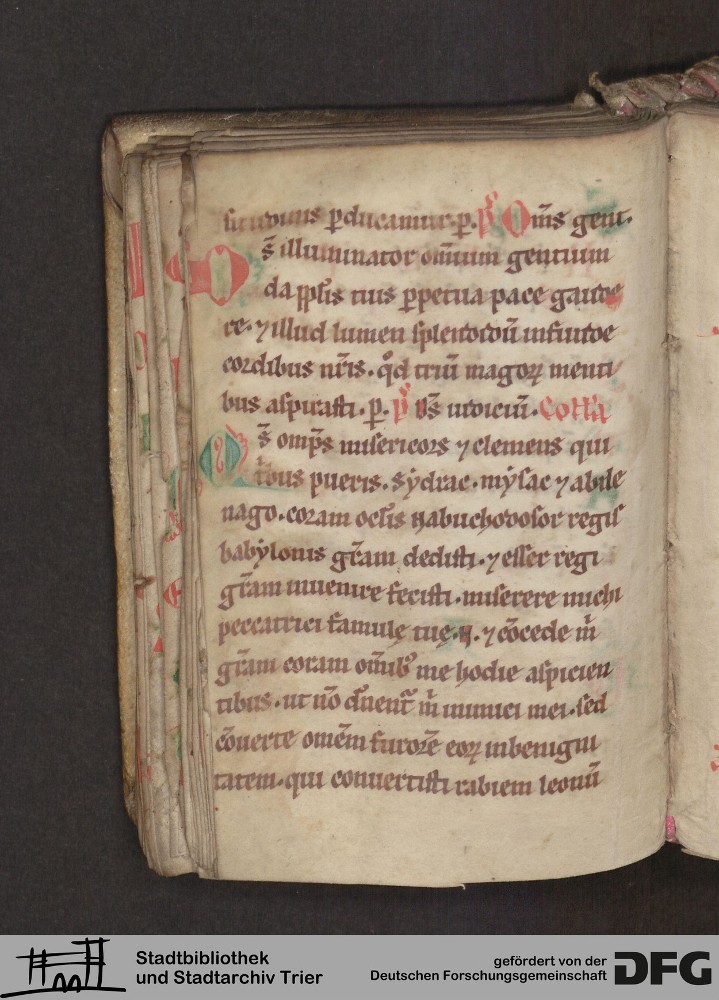 perducamur. p. ps Oms gent.
Ds illuminator omium gentium
da pplis tuis ppetua pace gaude
re. ⁊ illud lumen splendidū infunde
cordibus nr̄is. qd triū magoꝝ menti
bus aspirasti. p. ps Ds iudiciū. Coll'a
Ds omps misericors ⁊ clemens qui
tribus pueris. sẏdrac. mẏsac ⁊ abde
nago. coram oclis nabuchodosor regis
babẏlonis gr̄am dedisti. ⁊ esser regi
gr̄am inuenire fecisti. miserere michi
peccatrici famulę tuę. N. ⁊ cōcede m̄
gr̄am coram omib; me hodie aspicien
tibus. ut nō dn̄ent̄ m̄ inimici mei. sed
cōuerte omēm furorē eoꝝ in benigni
tatem. qui conuertisti rabiem leonū
Stadtbibliothek
und Stadtarchiv Trier
gefördert von der
Deutschen Forschungsgemeinschaft
DFG